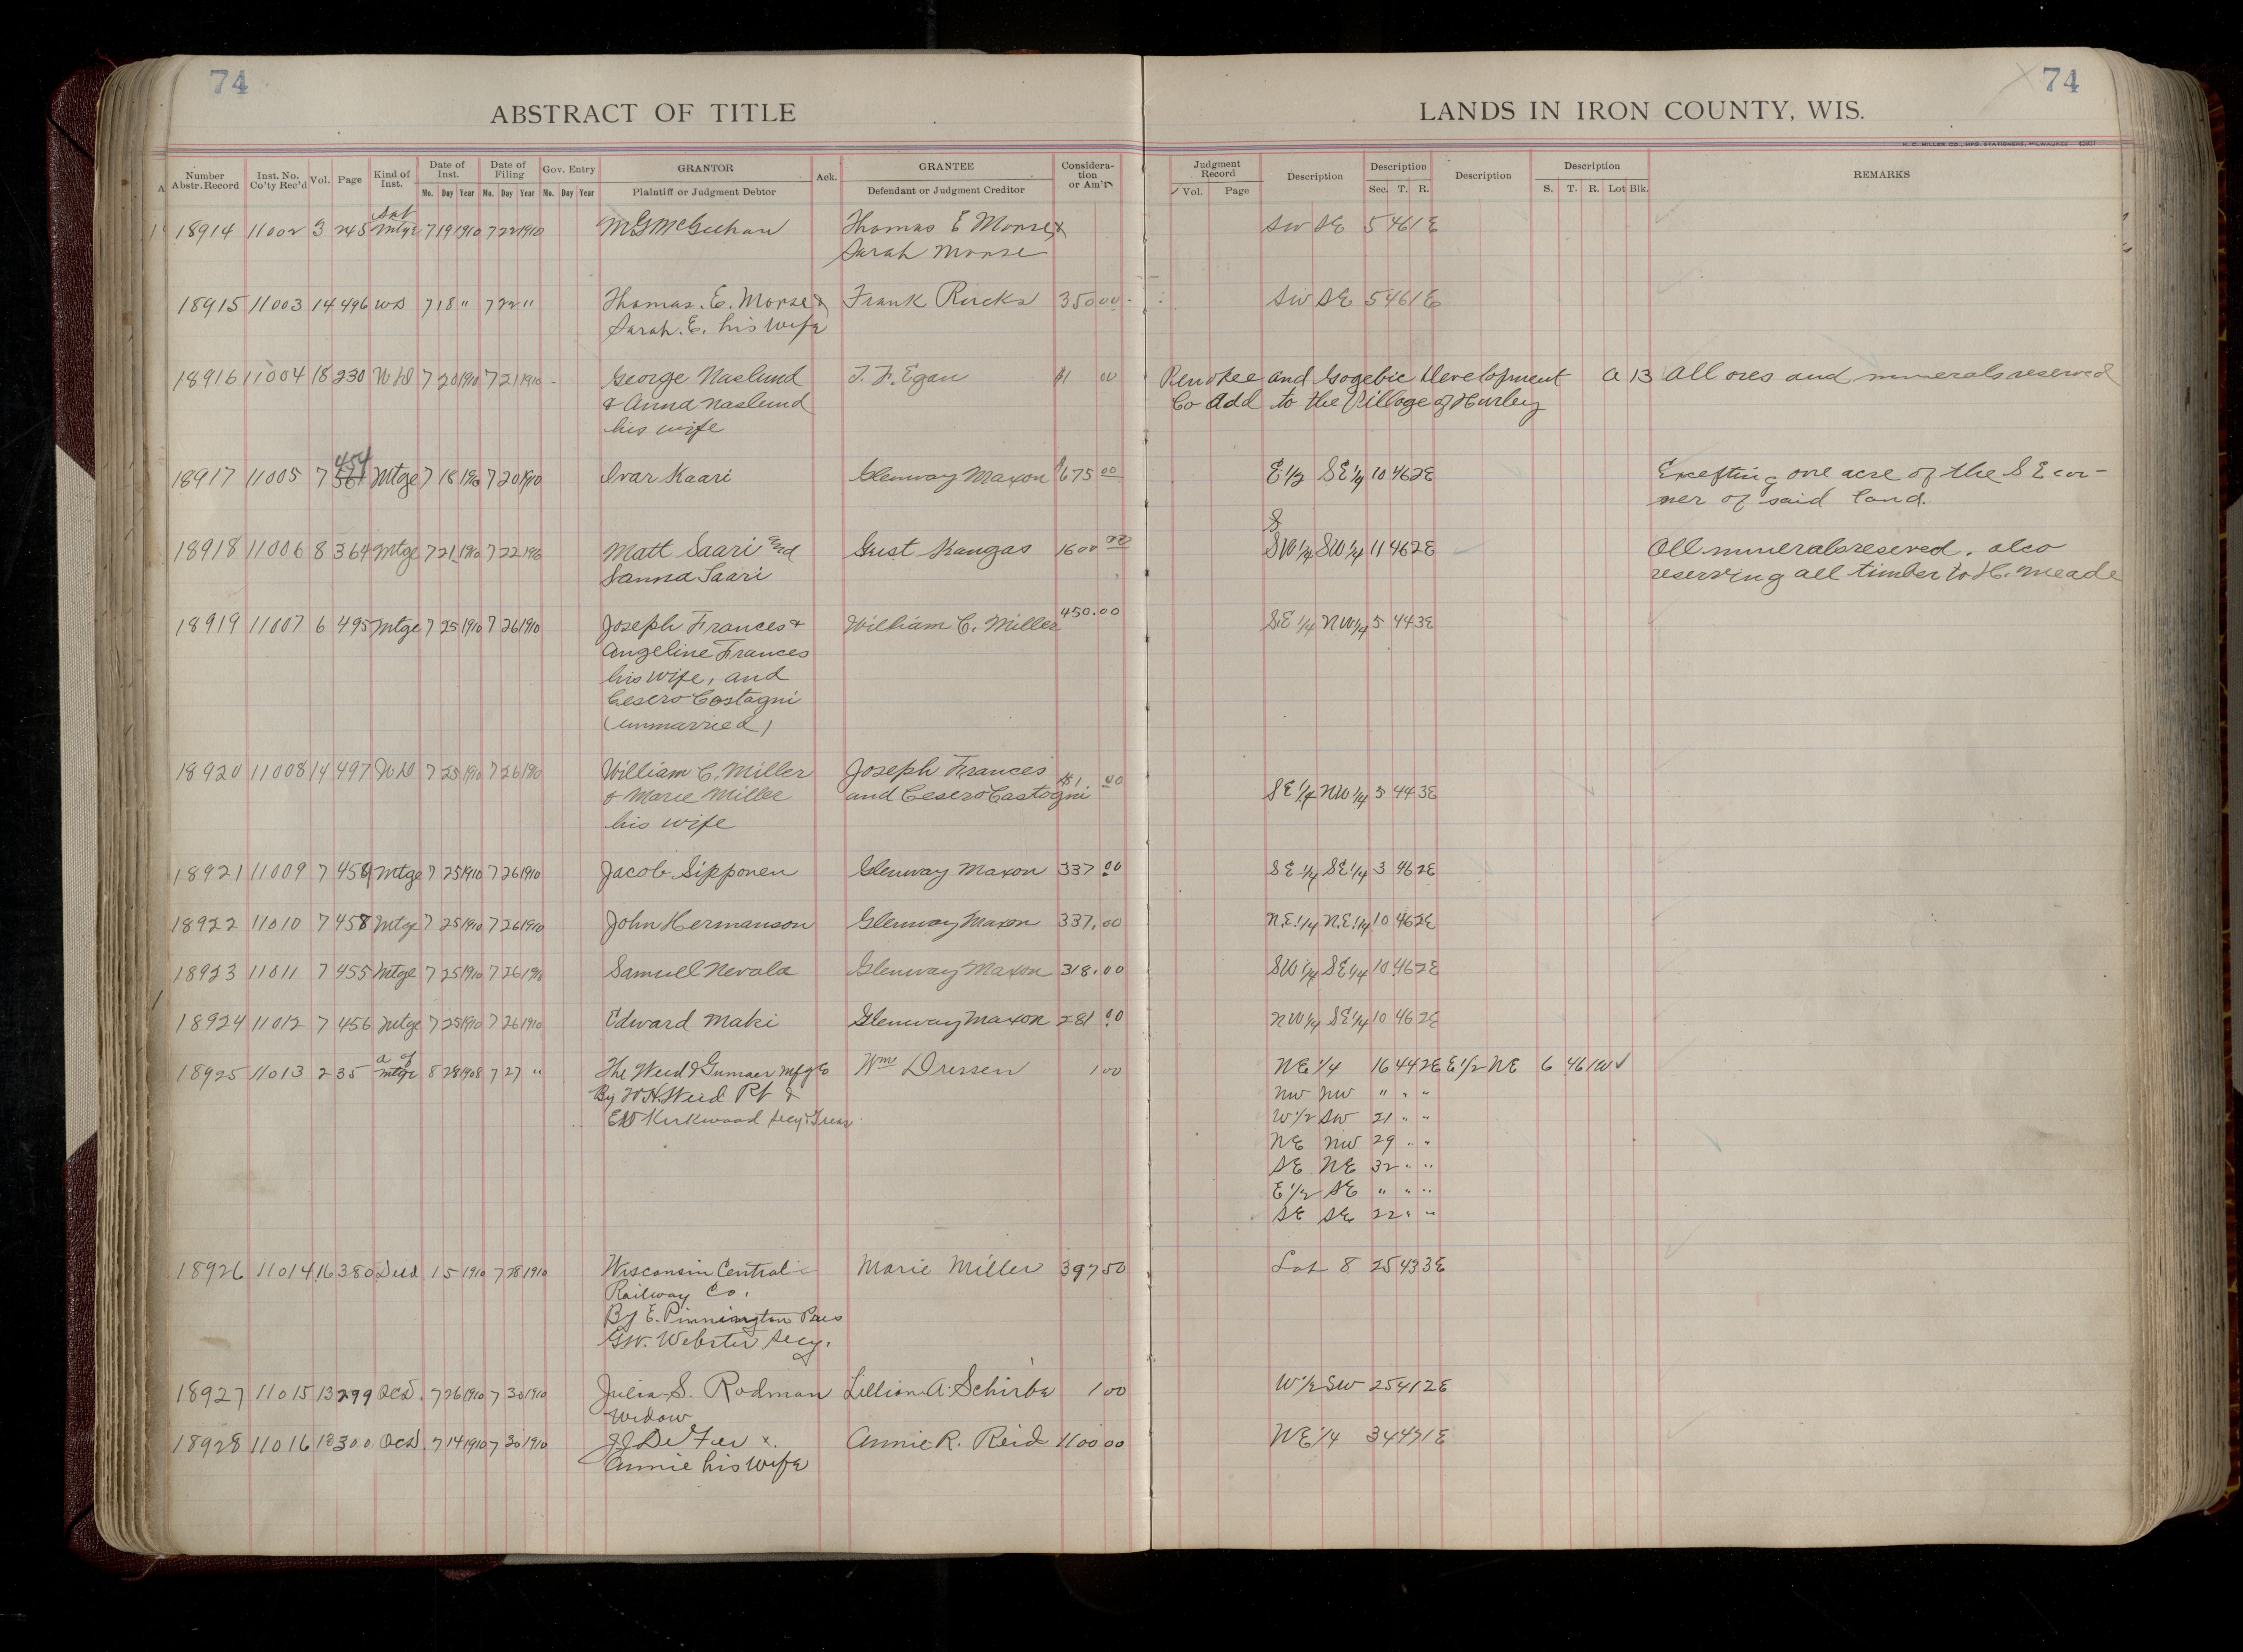 74
74
ABSTRACT OF TITLE
LANDS IN IRON COUNTY, WIS.
H. C. MILLER CO., MFG. STATIONERS, MILWAUKEE
Number Abstr. Record Inst. No. Co'ty Rec'd Vol. Page Kind of Inst. Date of Inst. Mo. Day Year Date of Filing Mo. Day Year Gov. Entry Mo. Day Year GRANTOR Plaintiff or Judgment Debtor Ack. GRANTEE Defendant or Judgment Creditor Considera- tion or Am't Judgment Record Vol. Page Description Description Sec. T. R. Description Description S. T. R. Lot Blk. REMARKS
Sat
18914 11002 3 245 Mtge 7 19 1910 7 22 1910 M G McGeehan Thomas E Morse & SW SE 5 46 1E
Sarah Morse
18915 11003 14 496 WD 7 18 " 7 22 " Thomas. E. Morse & Frank Rucks 350 00 SW SE 5 46 1E
Sarah. E. his wife
18916 11004 18 230 WD 7 20 1910 7 21 1910 George Naslund T. F. Egan $1 00 Penokee and Gogebic Development A 13 All ores and minerals reserved
& Anna Naslund Co Add to the Village of Hurley
his wife
454
18917 11005 7 Mtge 7 18 1910 7 20 1910 Ivar Kaari Glenway Maxon $675 00 E 1/2 SE 1/4 10 46 2E Excepting one acre of the S E cor-
ner of said land.
S
18918 11006 8 364 Mtge 7 21 1910 7 22 1910 Matt Saari and Gust Kangas 1600 00 SW 1/4 SW 1/4 11 46 2E All minerals reserved. also
Sanna Saari reserving all timber to H. Meade
18919 11007 6 495 Mtge 7 25 1910 7 26 1910 Joseph Frances & William C. Miller 450.00 SE 1/4 NW 1/4 5 44 3E
Angeline Frances
his wife, and
Cesero Costagni
(unmarried)
18920 11008 14 497 WD 7 25 1910 7 26 1910 William C. Miller Joseph Frances $1 00
& Marie Miller and Cesero Castogni SE 1/4 NW 1/4 5 44 3E
his wife
18921 11009 7 459 Mtge 7 25 1910 7 26 1910 Jacob Sipponen Glenway Maxon 337 00 SE 1/4 SE 1/4 3 46 2E
18922 11010 7 458 Mtge 7 25 1910 7 26 1910 John Hermanson Glenway Maxon 337.00 N.E. 1/4 N.E. 1/4 10 46 2E
18923 11011 7 455 Mtge 7 25 1910 7 26 1910 Samuel Nevala Glenway Maxon 318.00 SW 1/4 SE 1/4 10 46 2E
18924 11012 7 456 Mtge 7 25 1910 7 26 1910 Edward Maki Glenway Maxon 281 00 NW 1/4 SE 1/4 10 46 2E
a of
18925 11013 2 35 Mtge 8 28 1908 7 27 " The Weed & Gumaer Mfg Co Wm Dressen 1 00 NE 1/4 16 44 2E E 1/2 NE 6 46 1W
By W H Weed Pt & NW NW " " "
E W Kirkwood Secy & Treas W 1/2 SW 21 " "
NE NW 29 " "
SE NE 32 " "
E 1/2 SE " " "
SE SE 22 " "
18926 11014 16 380 Deed 1 5 1910 7 28 1910 Wisconsin Central Marie Miller 397 50 Lot 8 25 43 3E
Railway Co.
By E. Pinnington Pres
G.W. Webster Secy.
18927 11015 13 299 QCD. 7 26 1910 7 30 1910 Julia S. Rodman Lillian A. Schirbe 1 00 W 1/2 SW 25 41 2E
Widow
18928 11016 13 300 QCD. 7 14 1910 7 30 1910 J J DeFer & Annie R. Reid 1100 00 NE 1/4 34 47 1E
Annie his wife